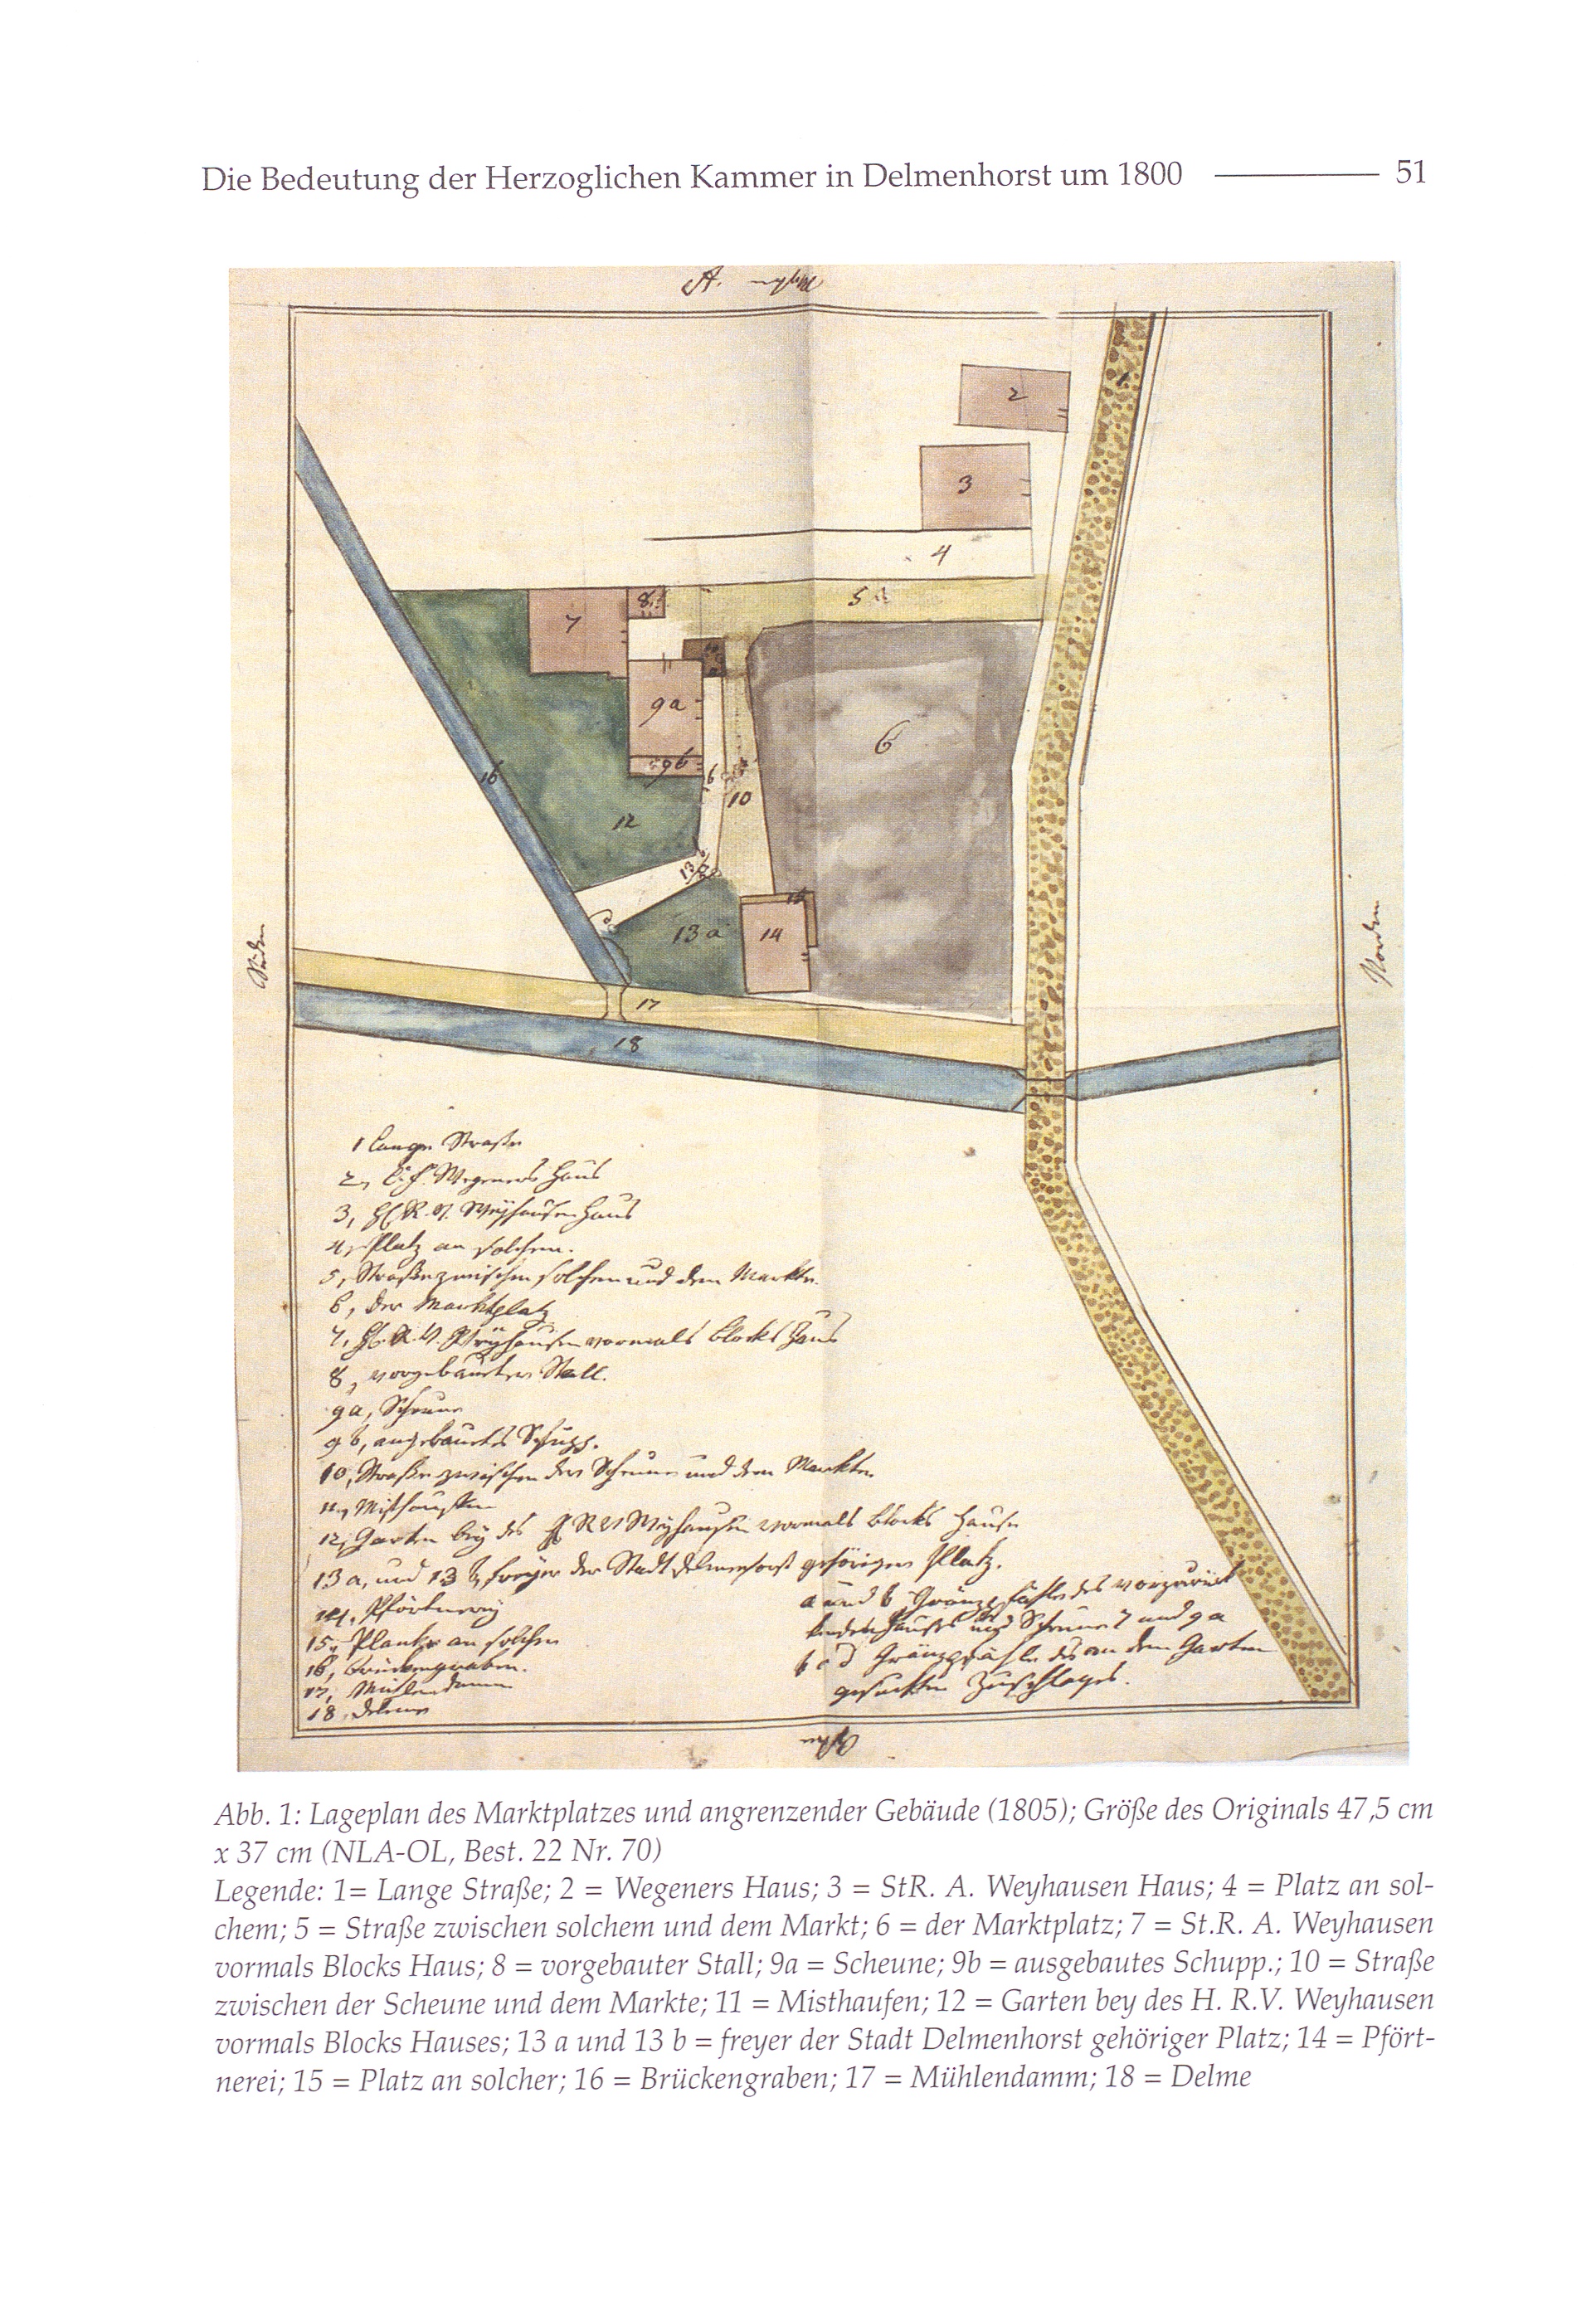 Die Bedeutung der Herzoglichen Kammer in Delmenhorst um 1800 51
A.
Westen
1
2
3
4
5 a
7
8
9a
6
9b
16
b
10
12
13
b
15
13 a
14
Süden
Norden
17
18
1 Lange Straße
2, C. F. Wegeners Haus
3, H. R. V. Weÿhausen Haus
4, Platz an solchem.
5, Straße zwischen solchem und dem Markte.
6, der Marktplatz
7, H. R. V. Weÿhausen vormals Blocks Haus
8, vorgebaueter Stall.
9a, Scheune
9b, angebauetes Schupp.
10, Straße zwischen der Scheune und dem Markte.
11, Misthaufen
12, Garten beÿ des H R V Weÿhausen vormals Blocks Hause
13 a, und 13 b, freyer der Stadt Delmenhorst gehöriger Platz.
14, Pförtnereÿ
15, Planke an solcher
16, Brückengraben.
17, Mühlendamm
18, Delme
a und b Gränzpfähle des
Hauses und Scheune 7 und 9 a
b c d Gränzpfähle des an dem Garten
gesuchten Zuschlages.
Osten
Abb. 1: Lageplan des Marktplatzes und angrenzender Gebäude (1805); Größe des Originals 47,5 cm
x 37 cm (NLA-OL, Best. 22 Nr. 70)
Legende: 1= Lange Straße; 2 = Wegeners Haus; 3 = StR. A. Weyhausen Haus; 4 = Platz an sol-
chem; 5 = Straße zwischen solchem und dem Markt; 6 = der Marktplatz; 7 = St.R. A. Weyhausen
vormals Blocks Haus; 8 = vorgebauter Stall; 9a = Scheune; 9b = ausgebautes Schupp.; 10 = Straße
zwischen der Scheune und dem Markte; 11 = Misthaufen; 12 = Garten bey des H. R.V. Weyhausen
vormals Blocks Hauses; 13 a und 13 b = freyer der Stadt Delmenhorst gehöriger Platz; 14 = Pfört-
nerei; 15 = Platz an solcher; 16 = Brückengraben; 17 = Mühlendamm; 18 = Delme